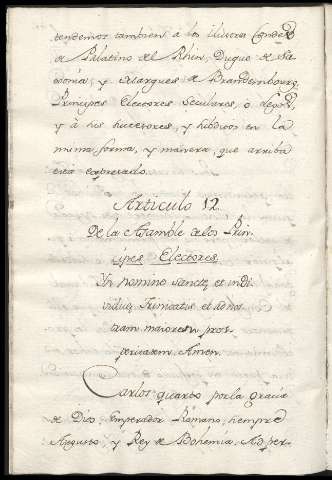 tendemos tambien à los Illustres Condes
de Palatino del Rhin, Duque de Sa-
xonia, y Marques de Brandembourg,
Principes Electores Seculares, ò legos,
y à sus sucesores, y subditos en la
misma forma, y manera, que arriba
esta expresado.
Articulo 12
De la Asamblè de los Prin-
cipes Electores.
Yn nomine Sanctæ et indi-
viduæ Trinitatis et ad nos-
tram maiorem pros-
peritatem. Amen.
Carlos quarto por la gracia
de Dios, Emperador Romano, siempre
Augusto, y Rey de Bohemia, Ad per-